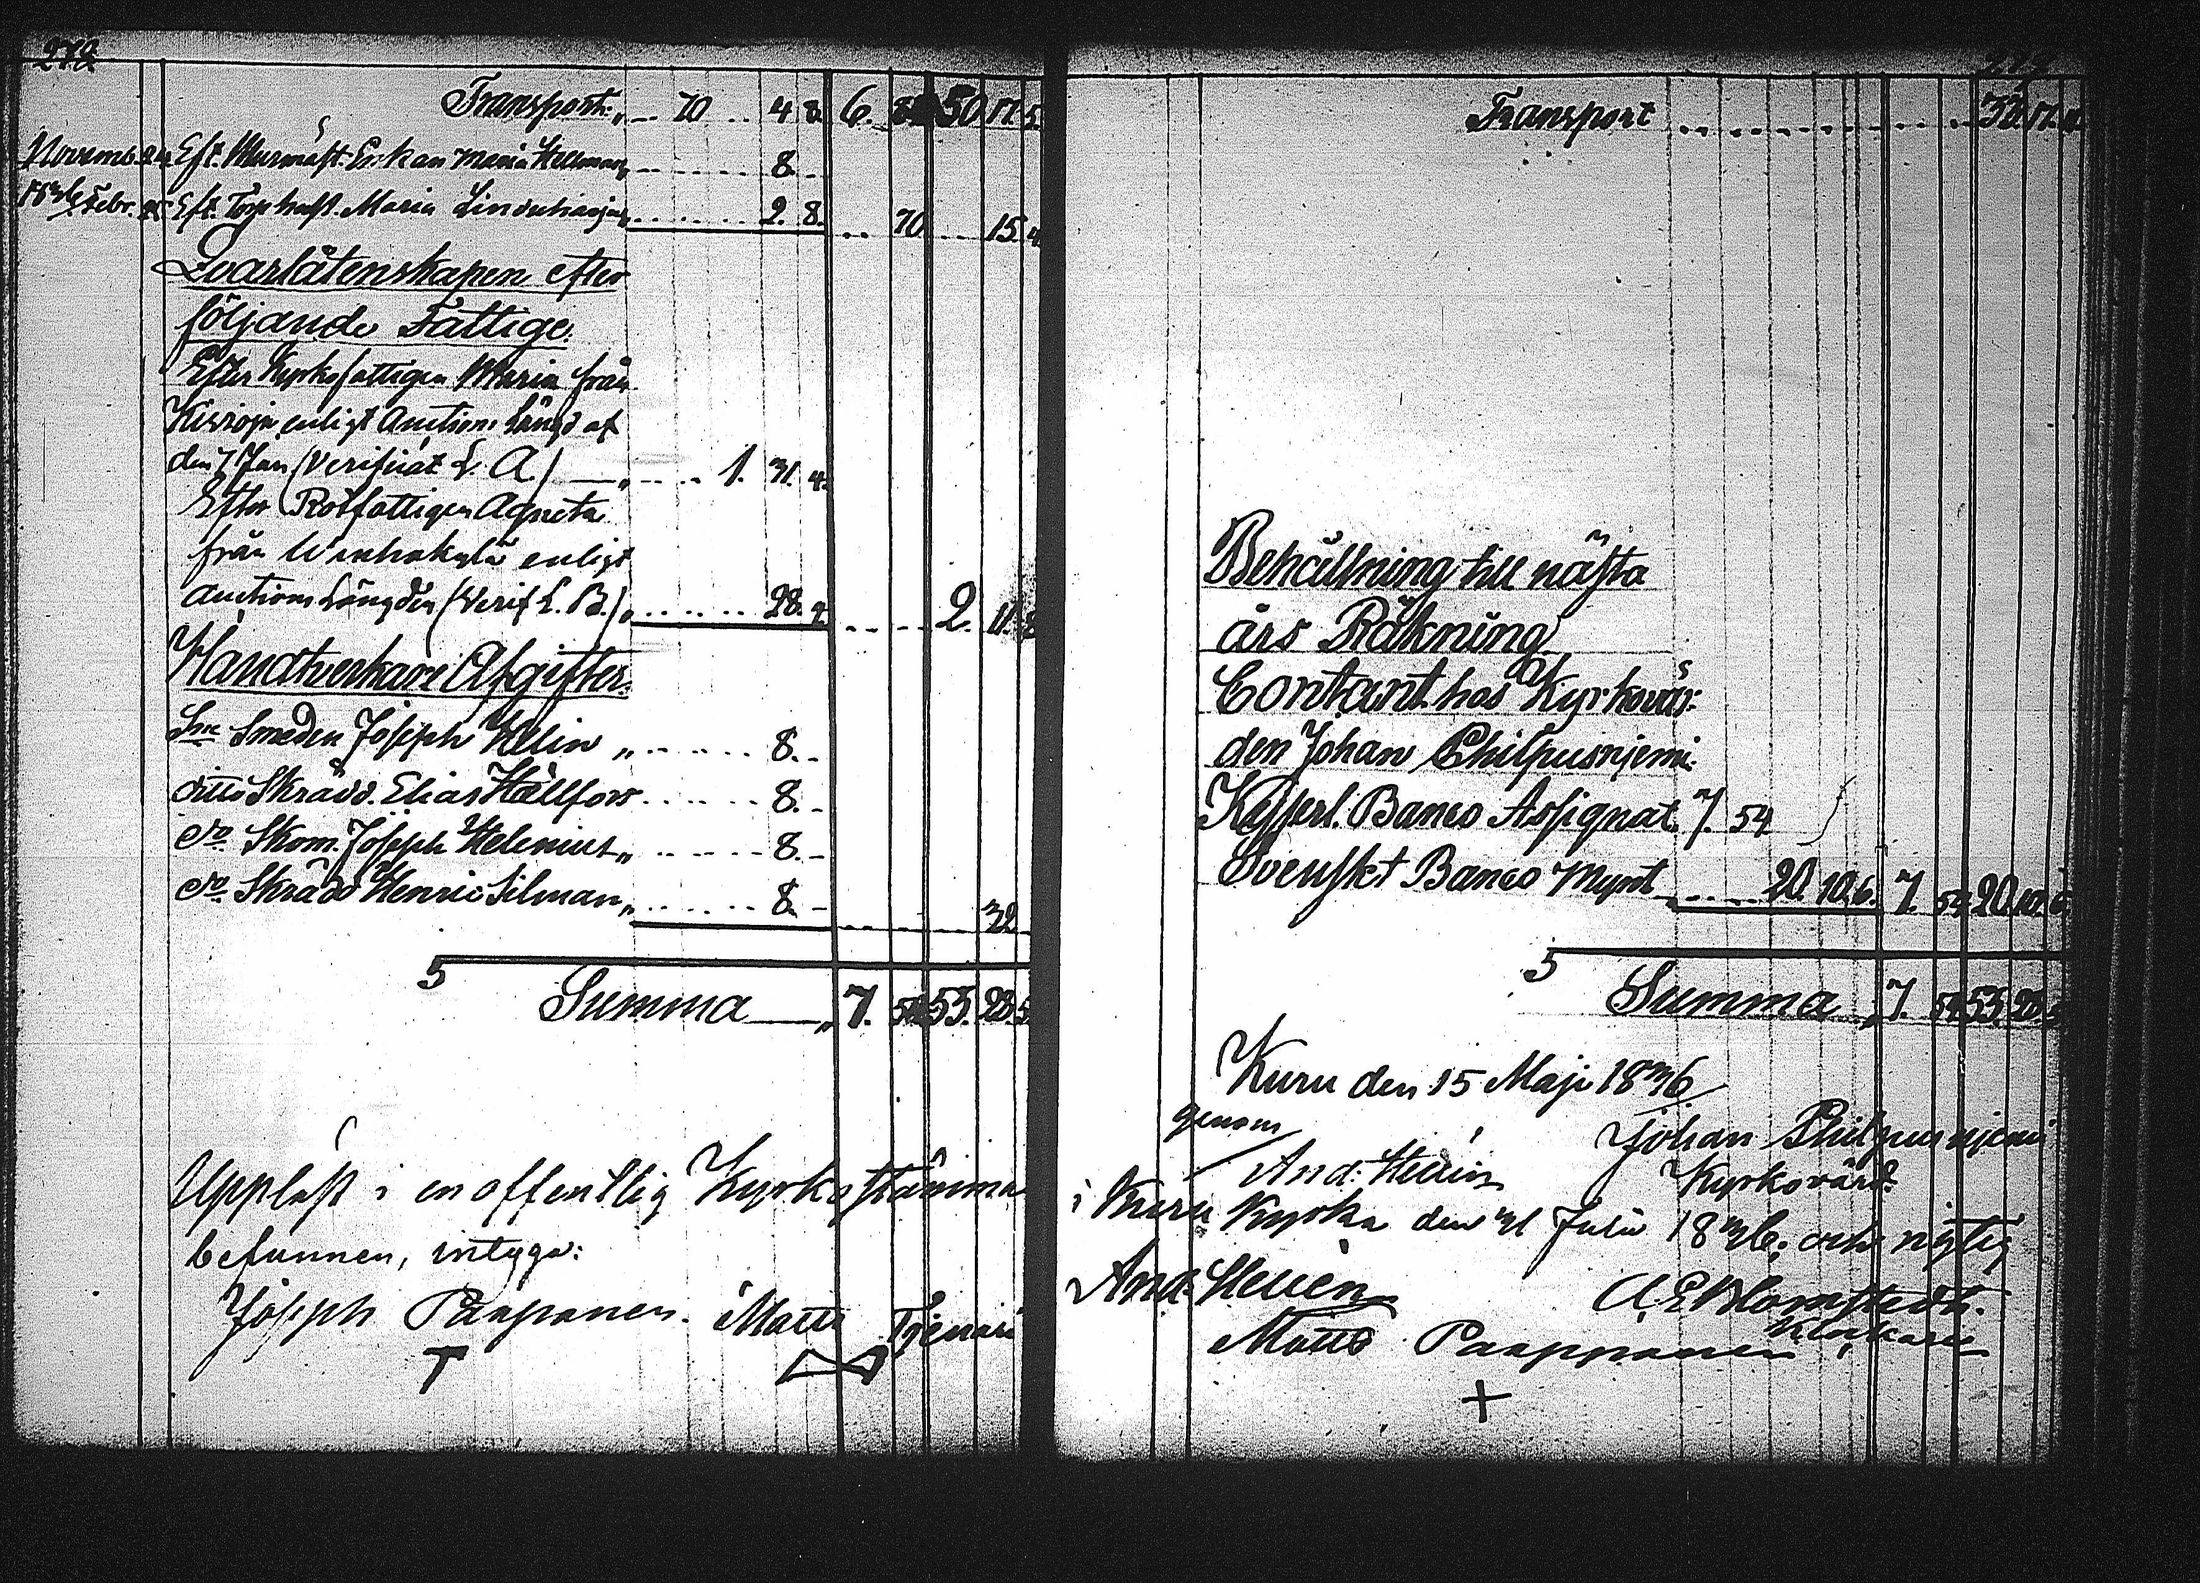 272
Transport „ 70 4 8. 6. 50 17. 5.
Novemb. 24 Eft. Murmäst. Enkan Maria Hellman „ 8. -
1836 Febr. 25 Eft. Torp hust. Maria „ 2. 8. 70 15. 4.
Qvarlåtenskapen efter
följande Fattige.
Efter Kyrkofattigen Maria från
enligt Auctions Längd af
den 7 Jan (Verificat L. A.) — „ 1. 31. 4.
Efter Rotfattigen Agneta
från enligt
Auctions Längden (Verif L. B.) „ 28. 4. 2. 11. 8
Handtverkare Afgifter.
Sn Smeden Joseph Helin „ 8. -
ditto Skrädd. Elias Hällfors 8. -
do Skom. Joseph Helenius „ 8. -
do Skrädd Henric Silman „ 8. - 32
5
Summa — „ 7. 54 53. 28. 5.
Uppläst i en offentlig Kyrkostämma
befunnen, intyga:
Joseph Paaponen. Matts
Transport 33. 17. 11.
Behållning till nästa
års Räkning
Contant hos Kyrkovär-
den Johan Philpusnjemi.
Kejserl. Banco Assignat. 7. 54
Svenskt Banco Mynt 20. 10. 6. 7. 54 20. 10. 6.
5
Summa „ 7. 54 53. 28. 5
Kuru den 15 Maji 1836
genom Johan Philpusnjemi
And: Helién Kyrkovärd.
i Kuru Kyrka den 31 Julii 1836; och riktig
And: Helién A. E. Blomstedt.
Klockare
Matts Paapponen